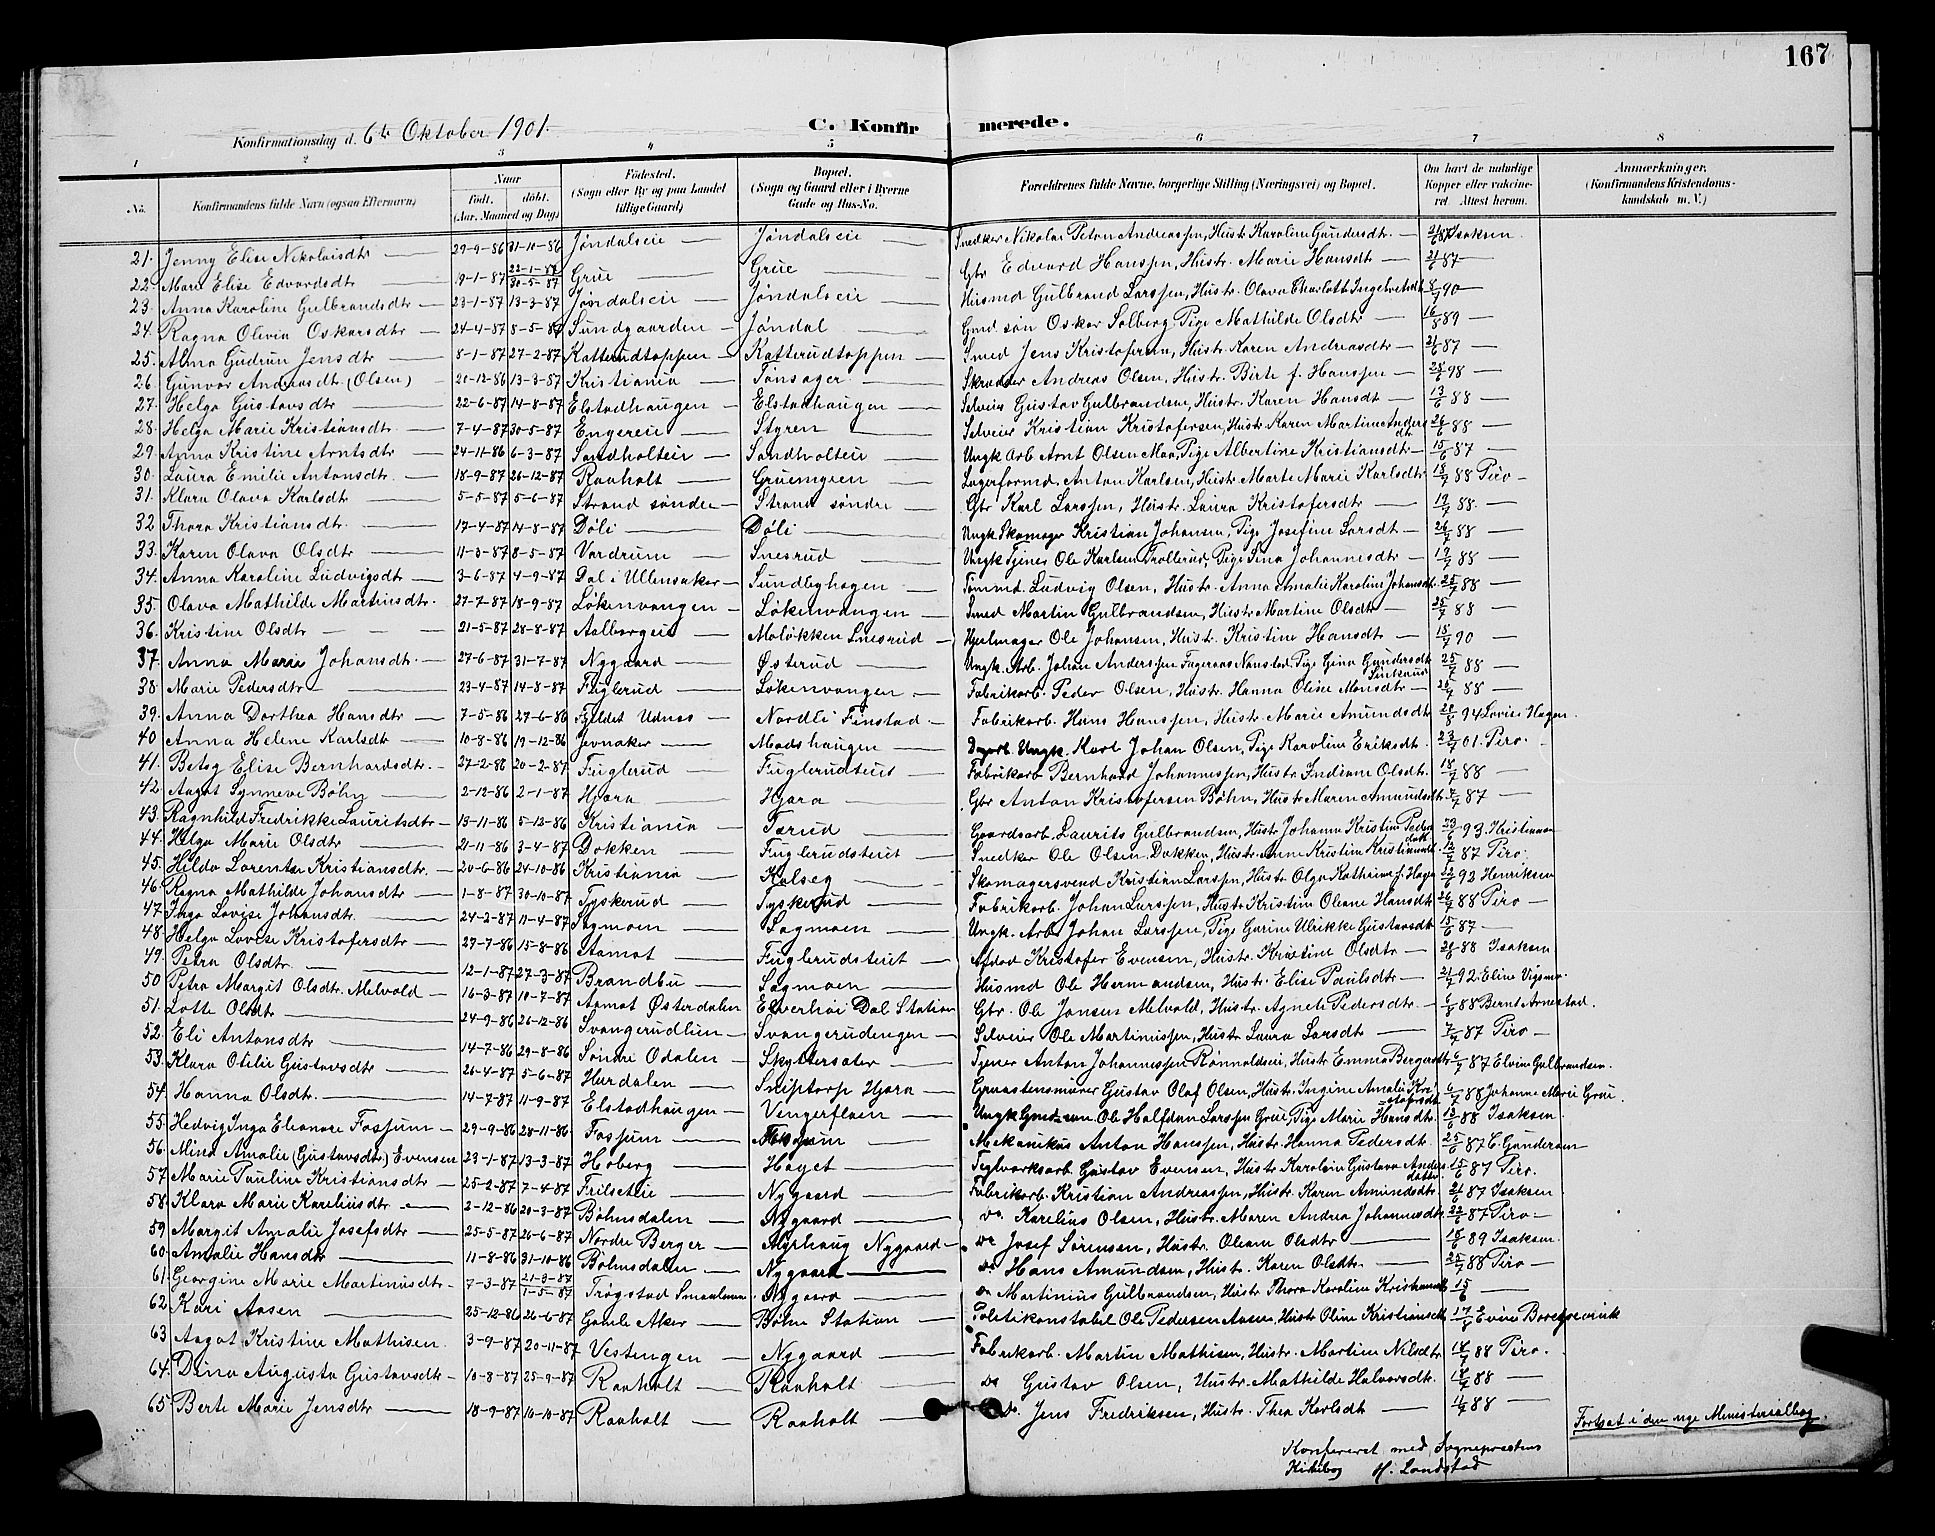 167
Konfirmationsdag d. 6te Oktober 1901.
C. Konfirmerede.
1 2 3 4 5 6 7 8
No. Konfirmandens fulde Navn (ogsaa Efternavn)
Naar
født. døbt.
(Aar, Maaned og Dag)
Fødested. (Sogn eller By og paa Landet tillige Gaard)
Bopæl. (Sogn og Gaard eller i Byerne Gade og Hus-No.
Forældrenes fulde Navne, borgerlige Stilling (Næringsvei) og Bopæl.
Om havt de naturlige Kopper eller vakcineret. Attest herom.
Anmærkninger. (Konfirmandens Kristendomskundskab m. V.)
21. Jenny Elise Nikolaisdtr — 29-9-86 31-10-86 Jøndalseie — Jøndalseie — Snedker Nikolai Peton Andreassen, Hustr. Karoline Gundersdt. — 21/6 87 Isaksen.
22. Marie Elise Edvardsdtr — 9-1-87 22-1-87 30-5-87 Grue — Grue — Gbr Edvard Hanssen, Hustr. Marie Hansdt — 21/6 87 —
23. Anna Karoline Gulbrandsdtr — 23-1-87 13-3-87 Jøndalseie — Jøndalseie — Husmd Gulbrand Larssen, Hustr. Olava Charlott Ingebretsdt 8/7 90 —
24. Ragna Olivia Oskarsdtr — 24-4-87 8-5-87 Sundgaarden — Jøndal — Gmd. søn Oskar Solberg Pige Mathilde Olsdtr — 16/8 89 —
25. Alma Gudrun Jensdtr — 8-1-87 27-2-87 Katterudtoppen — Katterudtoppen — Smed Jens Kristofersen, Hustr. Karen Andreasdtr — 21/6 87 —
26. Gunvor Andreasdtr (Olsen) — 20-12-86 13-3-87 Kristiania — Tønsager — Skrædder Andreas Olsen, Hustr. Birte f. Hanssen — 25/6 98 —
27. Helga Gustavsdtr — 22-6-87 14-8-87 Elstadhaugen — Elstadhaugen — Selveier Gustav Gulbrandsen, Hustr. Karen Hansdt — 13/6 88 —
28. Helga Marie Kristiansdtr. — 7-4-87 30-5-87 Engereie — Styren — Selveier Kristian Kristofersen, Hustr Karen Martine Andersdtr 26/6 88 —
29. Anna Kristine Arntsdtr — 24-11-86 6-3-87 Sandholteie — Sandholteie — Ungk Arb Arnt Olsen Moa, Pige Albertine Kristiansdt — 15/6 87 —
30. Laura Emilie Antonsdtr. — 18-9-87 26-12-87 Raaholt — Gruemyren — Lagerformd. Anton Karlsen, Hustr Marte Marie Karlsdtr 18/7 88 Piro —
31. Klara Olava Karlsdtr — 5-5-87 5-6-87 Strand søndre — Strand søndre — Gbr Karl Larssen, Hustr. Laura Kristofersdtr — 19/7 88. —
32. Thora Kristiansdtr. — 17-4-87 14-8-87 Døli — Døli — Ungk Skomager Kristian Johansen, Pige Josefine Larsdt — 26/7 88 —
33. Karen Olava Olsdtr — 11-3-87 8-5-87 Vardrum — Snesrud — Ungk Tjener Ole Karlsen Trollerud, Pige Sina Johannesdtr — 19/7 88 —
34. Anna Karoline Ludvigsdtr — 3-6-87 4-9-87 Dal i Ullensaker — Sundbyhagen — Tømmd. Ludvig Olsen, Hustr. Anna Amalie Karoline Johansdt. 25/7 88 —
35. Olava Mathilde Martinsdtr. 27-7-87 18-9-87 Løkenvangen — Løkenvangen — Smed Martin Gulbrandsen, Hustr Martine Olsdt — 25/7 88 —
36. Kristine Olsdtr — — — 21-5-87 28-8-87 Aalborgeie — Moløkken Snesrud — Hjulmager Ole Johansen, Hustr. Kristine Hansdt — 15/7 90 —
37. Anna Marie Johansdtr. — 27-6-87 31-7-87 Nygaard — Østerud — Ungk. Arb. Johan Anderssen Fageraas Nanstad, Pige Gina Gundersdt 25/7 88 —
38. Marie Pedersdtr — 23-4-87 14-8-87 Fuglerud — Løkenvangen — Fabrikarb. Peder Olsen, Hustr. Hanna Oline Monsdtr — 25/7 88 —
39. Anna Dorthea Hansdtr — 7-5-86 27-6-86 Fjeldet Udnes — Nordli Finstad — Fabrikarb. Hans Hanssen, Hustr. Marie Amundsdt 28/8 94 Lovise Hagen.
40 Anna Helene Karlsdtr — 10-8-86 19-12-86 Jevnaker — Madshaugen — Dagarb. Ungk. Karl Johan Olsen, Pige Karoline Eriksdt. 23/7 01. Piro —
41. Betsy Elise Bernhardsdtr. — 27-2-86 20-2-87 Fuglerud — Fuglerudteiet — Fabrikarb Bernhard Johannessen, Hustr. Indiane Olsdt. 18/7 88 —
42. Aagot Synneve Bøhn — 2-12-86 2-1-87 Hjera — Hjera — Gbr Anton Kristofersen Bøhn, Hustr Maren Amundsdtr 7/7 87 —
43. Ragnhild Fredrikke Lauritsdtr — 13-11-86 5-12-86 Kristiania — Tærud — Gaardsarb. Laurits Gulbrandsen, Hustr Johanne Kristine Pedersdatr 23/6 93. Kristiansen
44. Helga Marie Olsdtr — 21-11-86 3-4-87 Dokken Fuglerudsteiet — Snedker Ole Olsen Dokken, Hustr. Ane Kristine Kristiansdt. 12/7 87 Piro.
45. Hilda Lorentze Kristiansdtr. — 20-6-86 24-10-86 Kristiania — Kolseg — Skomagersvend Kristian Larssen, Hustr Olga Kathrine f. Hagen 12/6 92 Henriksen
46 Ragna Mathilde Johansdtr — 1-8-87 30-10-87 Tyskerud — Tyskerud — Fabrikarb. Johan Larssen, Hustr. Kristine Oliane Hansdt 26/7 88 Piro —
47. Inga Lovise Johansdtr. — 24-2-87 11-4-87 Sagmoen — Sagmoen — Ungk. Arb. Johan Larssen, Pige Gurine Ulrikke Gustavsdt 15/6 87 —
48. Helga Lovise Kristofersdtr — 27-7-86 15-8-86 Aamot — Fuglerudsteiet — Afdød Kristofer Evensen, Hustr. Kristine Olsdtr — 21/6 88 Isaksen
49. Petra Olsdtr. — 12-1-87 27-3-87 Brandbu — Sagmoen — Husmd Ole Hermandsen, Hustr. Elise Paulsdtr — 21/7 92. Eline Vigsmo.
50 Petra Margit Olsdtr. Melvold — 16-3-87 10-7-87 Aamot Østerdalen Elverhøi Dal Station Gbr. Ole Jonsen Melvold, Hustr. Agnete Pedersdtr. — 6/8 88 Bernt Arnestad.
51. Lotte Olsdtr — 24-9-86 26-12-86 Svangerudlien — Svangerudengen — Selveier Ole Martinussen, Hustr Laura Larsdt — 7/7 87 Piro —
52. Eli Antonsdtr — 14-7-86 29-8-86 Søndre Odalen — Skyttersæter — Tjener Anton Johannessen Rønnoldseie, Hustr Emma Bergersdtr 6/7 87 Elvine Gulbrandsen.
53. Klara Otilie Gustavsdtr — 26-4-87 5-6-87 Hurdalen — Sniptorp Hjera — Graastensmurer Gustav Olaf Olsen, Hustr. Ingine Amalie Kristofersdt 6/7 88 Johanne Marie Grue.
54. Hanna Olsdtr. — 14-7-87 11-9-87 Elstadhaugen — Vengerfloen — Ungk Gmd. søn Ole Halfdan Larssen Grue, Pige Marie Hansdt. 13/6 88 Isaksen.
55. Hedvig Inga Eleonore Fossum — 29-9-86 28-11-86. Fossum — Fossum — Mekanikus Anton Hanssen, Hustr. Hanna Pedersdtr. 25/6 87 C. Gundersen
56. Mina Amalie (Gustavsdtr.) Evensen 23-1-87 13-3-87 Hoberg — Høyet — Teglværksarb. Gustav Evensen, Hustr Karoline Gustava Andersdatter. 15/6 87 Piro.
57. Marie Pauline Kristiansdtr — 25-2-87 7-4-87 Frilsetlie — Nygaard — Fabrikarb. Kristian Andreassen, Hustr. Karen Amundsdtr. 21/6 87 Isaksen
58. Klara Marie Kareliusdtr — 2-12-86 20-3-87 Bøhnsdalen — Nygaard — do. Karelius Olsen, Hustr. Maren Andrea Johannesdtr. 22/6 87 Piro —
59. Margit Amalie Josefsdtr — 25-5-87 26-6-87 Nordre Berger — Myrhaug Nygaard — do Josef Sørensen, Hustr. Oliane Olsdtr — 15/6 89 Isaksen
60. Amalie Hansdtr — 11-8-86 31-10-86 Bøhnsdalen — Nygaard — do Hans Amundsen, Hustr. Karen Olsdt. — 25/7 88 Piro —
61. Georgine Marie Martinusdtr — 7-3-87 21-3-87 1-5-87 Trøgstad Smaalenene Nygaard — do Martinius Gulbrandsen, Hustr Thora Karoline Kristiansdt 15/6
62. Kari Aasen — 25-12-86 26-6-87 Gamle Aker — Bøhn Station — Politikonstabel Ole Pedersen Aasen, Hustr Oline Kristiansdt 17/8 Borregrevink
63. Aagot Kristine Mathisen. 3-9-87 20-11-87 Vestengen — Nygaard — Fabrikarb. Martin Mathisen, Hustr. Martine Nilsdtr 18/7 88 Piro.
64. Dina Augusta Gustavsdtr — 10-8-87 25-9-87 Raaholt — Raaholt — do Gustav Olsen, Hustr. Mathilde Halvorsdtr. 18/7 88 —
65. Berte Marie Jensdtr — 18-9-87 16-10-87 Raaholt — Raaholt — do. Jens Fredriksen, Hustr. Thea Karlsdt — 11/7 88 —
Fortsat i den nye Ministerialbog.
Konfereret med Sognepræstens
Kirkebog H. Landstad